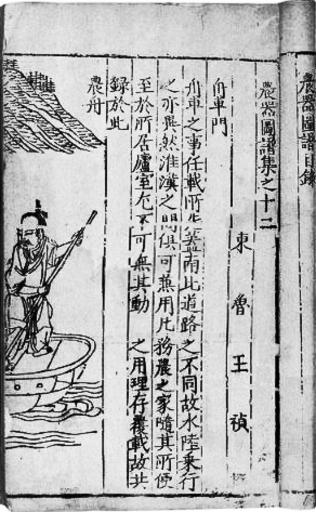 農器圖譜目錄
農器圖譜集之十二
東魯王禎
舟車門
舟車之事任載所蓋南北道路之不同故水陸乘行
之亦異然淮漢之間俱可兼用凡務農之家隨其所便
至於所居廬室尤不可無其動之用理存覆載故共
錄於此
農舟